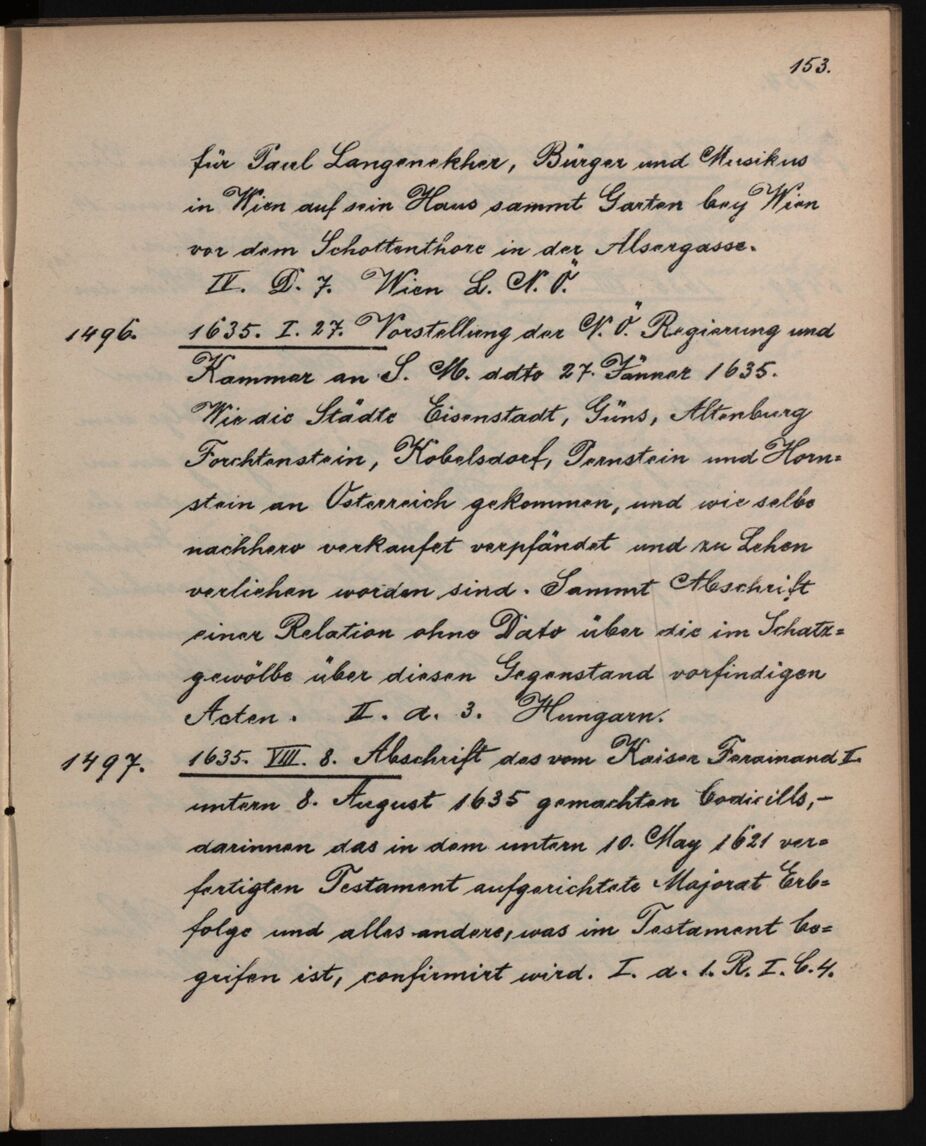 153.
für Paul Langenekher, Bürger und Musikus
in Wien auf sein Haus sammt Garten bey Wien
vor dem Schottenthore in der Alsergasse.
IV. D. 7. Wien L. N. Ö.
1496. 1635. I. 27. Vorstellung der N. Ö. Regierung und
Kammer an S. M. ddto 27. Jänner 1635.
Wie die Städte Eisenstadt, Güns, Altenburg
Forchtenstein, Kobelsdorf, Pernstein und Horn=
stein an Österreich gekommen, und wie selbe
nachhero verkaufet verpfändet und zu Lehen
verliehen worden sind. Sammt Abschrift
einer Relation ohne Dato über die im Schatz=
gewölbe über diesen Gegenstand vorfindigen
Acten. II. a. 3. Hungarn.
1497. 1635. VIII. 8. Abschrift des vom Kaiser Ferdinand II.
untern 8. August 1635 gemachten Codicills,-
darinnen das in dem untern 10. May 1621 ver=
fertigten Testament aufgerichtete Majorat Erb=
folge und alles andere, was im Testament be=
grifen ist, confirmirt wird. I. a. 1. R. I. C. 4.